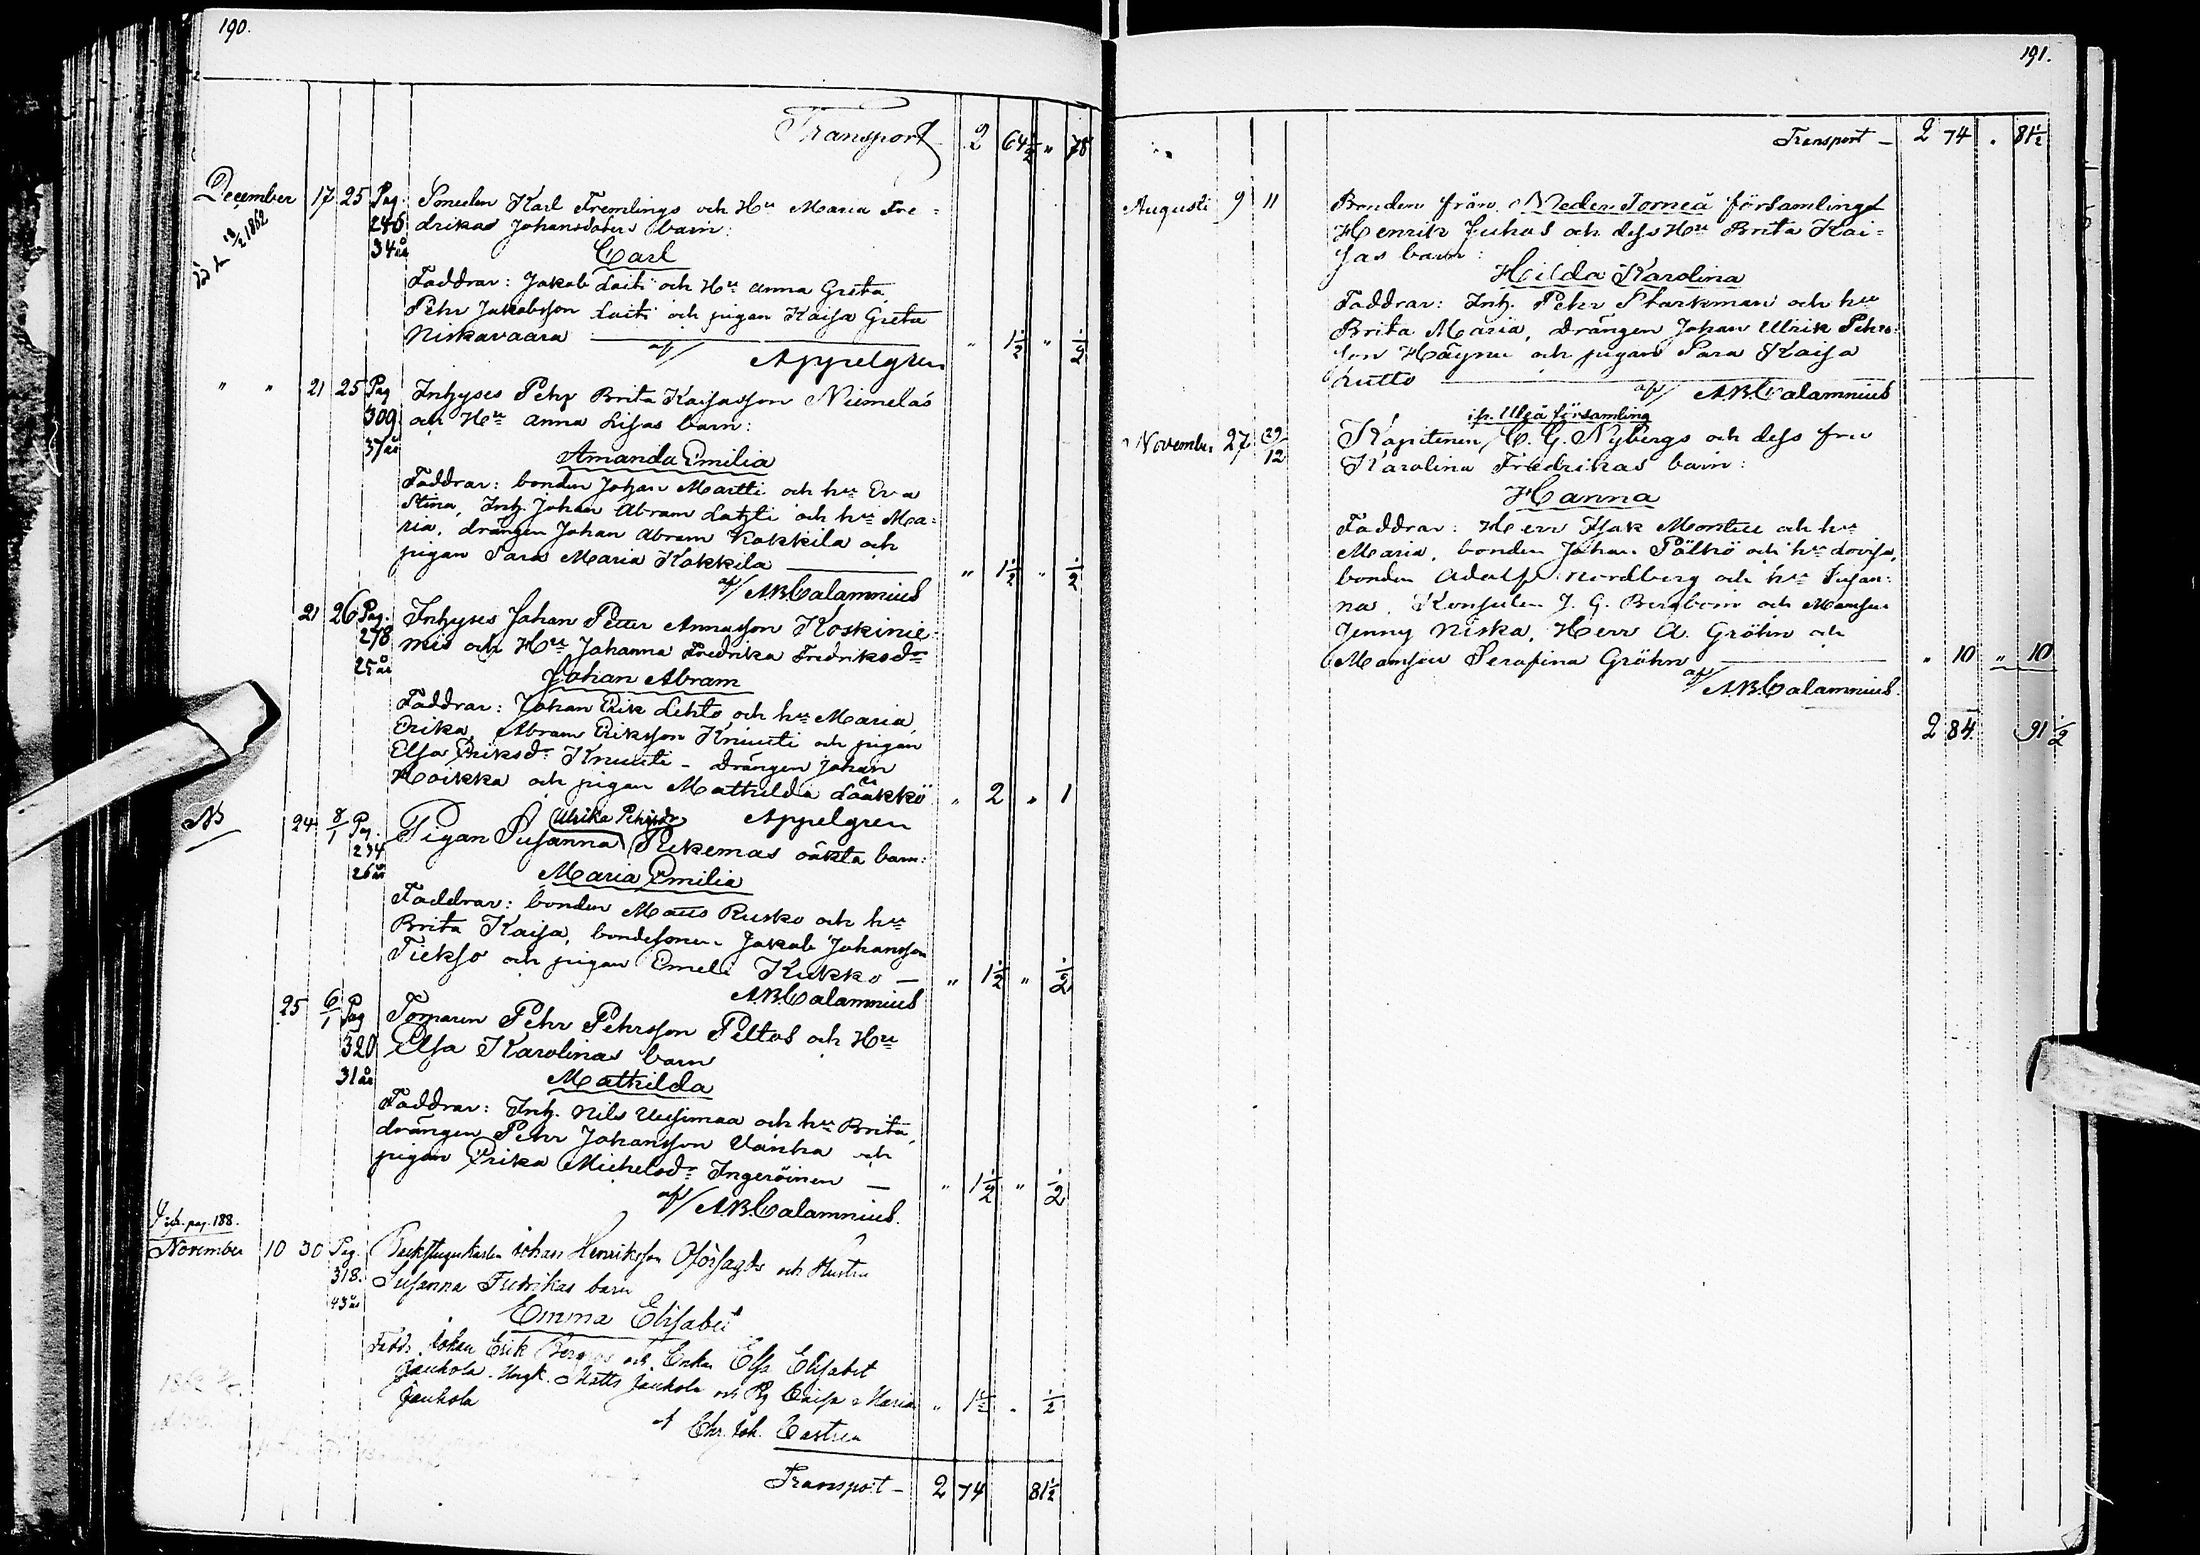 190.
Transport 2 64 1/2 " 78
December 17 25 Pag. Smeden Karl Fremlings och Hu Maria Fre=
246 drikas Johansdoters barn:
34 år Carl
Faddrar: Jakob Laiti och Hu Anna Greta,
Pehr Jakobsson Laiti och pigan Kaisa Greta
Niskavaara " 1 1/2 " 1/2
af/ Appelgren
" " 21 25 Pag Inhyses Pehr Brita Kaisasson Niemeläs
309 och Hu Anna Lisas barn:
37 år Amanda Emilia
Faddrar: bonden Johan Martti och hu Eva
Stina, Inh. Johan Abram Lahti och hu Ma=
ria, drängen Johan Abram Kokkila och
pigan Sara Maria Kokkila " 1 1/2 " 1/2
af/ A.B. Calamnius
21 26 Pag. Inhyses Johan Petter Annasson Koskinie=
278 mis och Hu Johanna Fredrika Fredriksdr
25 år Johan Abram
Faddrar: Johan Erik Lehto och hu Maria
Erika, Abram Eriksson Knuuti och pigan
Elsa Eriksdr Knuuti - drängen Johan
Hoikka och pigan Mathilda Lääkkö " 2 " 1
Appelgren
NB 24 8/1 Pag. Pigan Susanna Ulrika Pehrsdr Rekemas oäkta barn:
234
26 år Maria Emilia
Faddrar: bonden Matts Rusko och hu
Brita Kaisa, bondesonen Jakob Johansson
Tiekso och pigan Emeli Kukko " 1 1/2 " 1/2
A.B. Calamnius
25 6/1 Pag Torparen Pehr Pehrsson Peltos och Hu
320 Elsa Karolinas barn
31 år Mathilda
Faddrar: Inh. Nils Uusimaa och hu Brita,
drängen Pehr Johansson Vanha och
pigan Erika Michelsdr Ingeröinen " 1 1/2 " 1/2
af/ A.B. Calamnius.
pag. 188.
November 10 30 Pag. Backstugukarlen Johan Henriksson Oförsagds och Hustru
318. Susanna Fredrikas barn
43 år Emma Elisabet
Faddr. Johan Erik och Enkan Elsa Elisabet
Jaukola. Yngk. Matts Jaukola och Pig Caisa Maria
Jaukola " 1 1/2 " 1/2
af Chr. Joh. Castren
Transport - 2 74 81 1/2
191.
Transport - 2 74 . 81 1/2
Augusti 9 11 Bonden från Neder Torneå församling
Henrik Juhas och dess Hu Brita Kai=
sas barn:
Hilda Karolina
Faddrar: Inh. Pehr Starkman och hu
Brita Maria, drängen Johan Ulrik Pehrs=
son Häyny och pigan Sara Kaisa
Kutto
af/ A.B. Calamnius
i fr. Uleå församling
November 27 29/12 Kaptenen C. G. Nybergs och dess fru
Karolina Fredrikas barn:
Hanna
Faddrar: Herr Isak Montin och hu
Maria, bonden Johan Pölhö och hu Lovisa,
bonden Adolf Nordberg och hu Susan=
na, Konsulen J. G. Bergbom och Mamsell
Jenny Niska, Herr A. Gröhn och
Mamsell Serafina Gröhn " 10 " 10
af/ A.B. Calamnius.
2 84 91 1/2